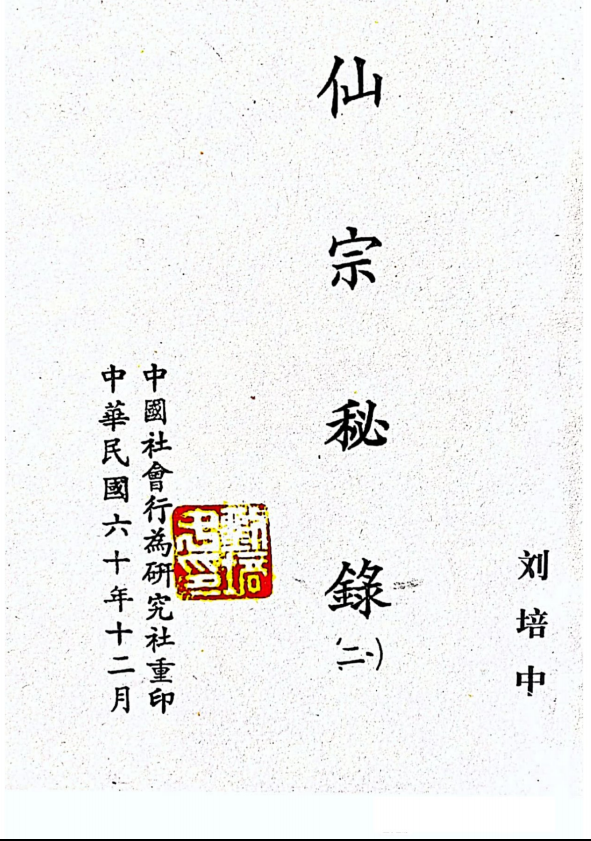 刘培中
仙宗秘錄(二)
中國社會行為研究社重印
中華民國六十年十二月